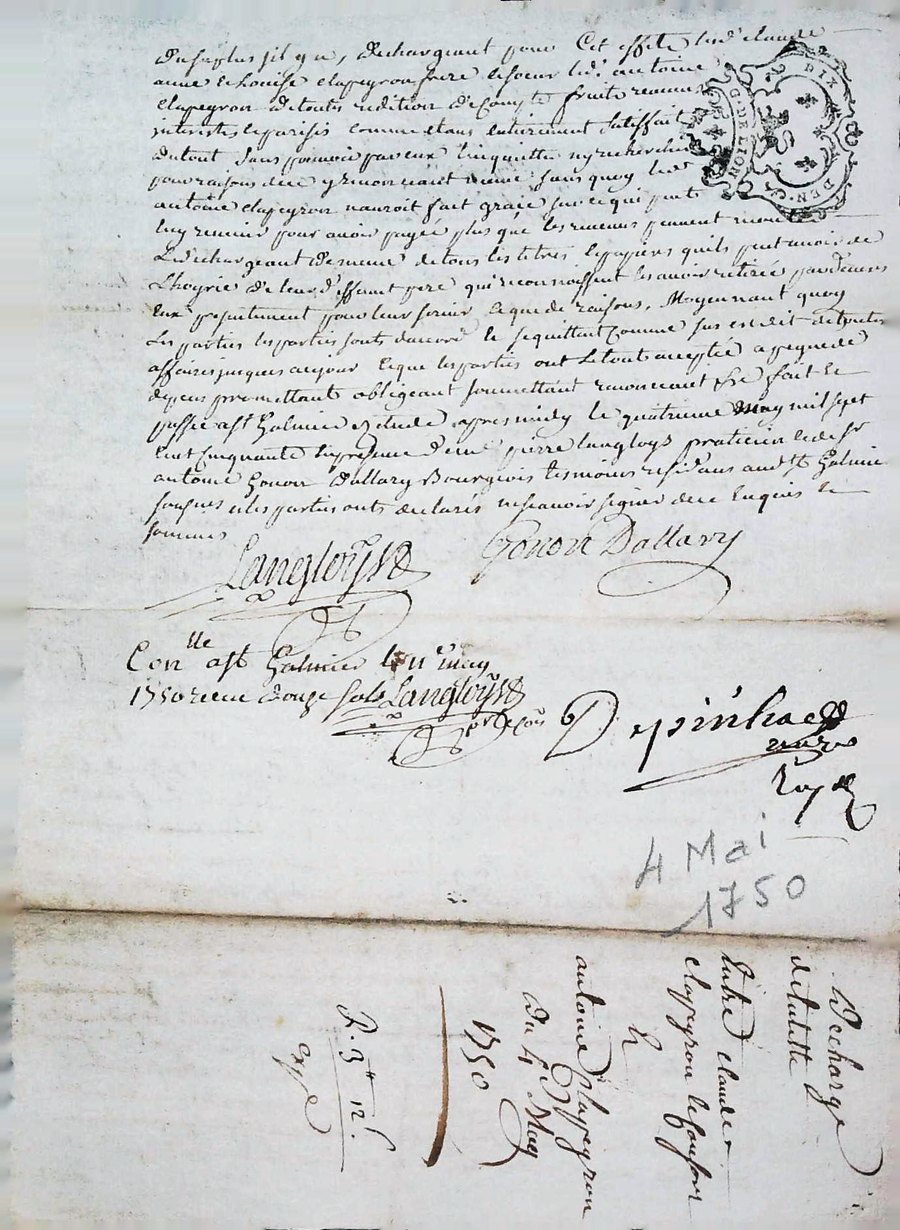 du surplus sil que, dechargeant pour Cet effete led. claude
anne et louise clapeyron frere et soeur led. antoine
clapeyron de touts reddition de compte fruits revenus
interests comme etans entierement satisfait
du tout sans pouvoir par eux linquietter ny rechercher
pour raisons de ce y renonceant meme sans quoy led.
antoine clapeyron nauroit fait grace sur ce qui peut
luy revenir pour avoir payée plus que les revenus peuvent
Led. dechargeant de meme de tous les titres et papiers quils peut avoir de
Lhoyrie de leur deffunt pere qu'reconnoissent les avoir retirée
Eux presentement pour leur servir ce que de raisons, Moyennant quoy
Les parties les parties sonts daccord et se quittent comme sus est dit de toutes
affaires jusques aujour Ce que les parties ont Le touts acceptée a peyne de
depens promettants obligeant soumettant renonceant &c fait et
passée a St Galmier etude apres midy le quatrieme May mil sept
cent cinquante En presence de me pierre Langloys praticien et de sr
antoine Gonon Dallary Bourgeois tesmoins residans aud. St Galmier
soussignés et les parties onts declarés ne scavoir signer de ce Enquis et
sommés
Langloys Gonon Dallary
Con.lle a St Galmier le 11e may
1750 receu Douze sols Langloys
Depinhac
nore
Royal
4 Mai
1750
Decharge
de tutelle
Entre claude
clapeyron et consors
&
antoine Clapeyron
Du 4e May
1750
R. 3# 12s.
exppe
DIX DEN.
G. DE LION